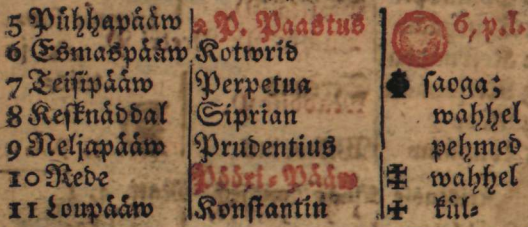 5 Pühhapääw 2 P. Paastus 6, p.l.
6 Esmaspääw Kotwrid
7 Teisipääw Perpetua saoga;
8 Kesknäddal Siprian wahhel
9 Neljapääw Prudentius pehmed
10 Rede Pööri-Pääw wahhel
11 Loupääw Konstantin kül-